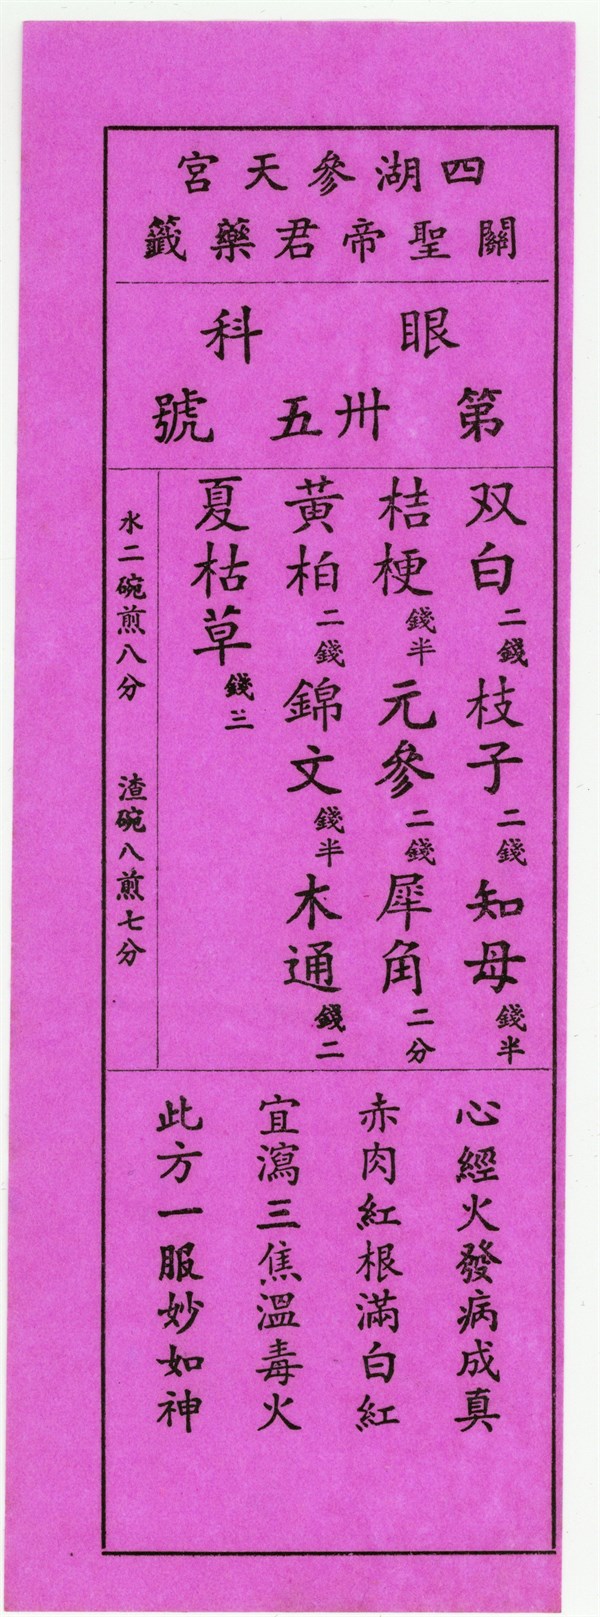 四湖參天宮
關聖帝君藥籤
眼科
第卅五號
双白二錢枝子二錢知母錢半
桔梗錢半元參二錢犀角二分
黃柏二錢錦文錢半木通錢二
夏枯草錢三
水二碗煎八分 渣碗八煎七分
心經火發病成真
赤肉紅根滿白紅
宜瀉三焦溫毒火
此方一服妙如神